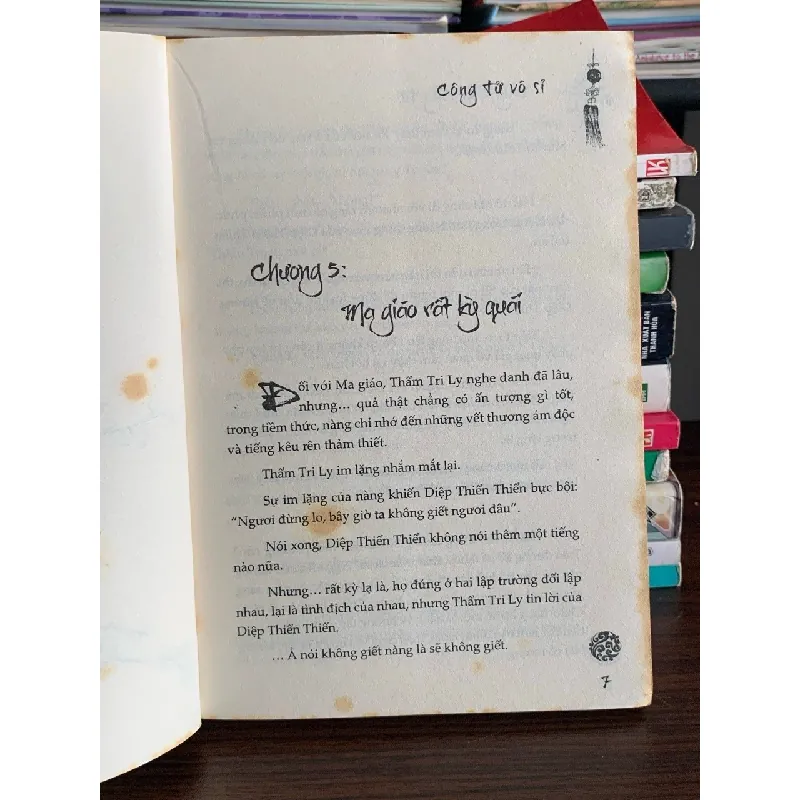 Công tử vô sỉ
Chương 5:
Ma giáo rất kỳ quái
Đối với Ma giáo, Thẩm Tri Ly nghe danh đã lâu,
nhưng... quả thật chẳng có ấn tượng gì tốt,
trong tiềm thức, nàng chỉ nhớ đến những vết thương ám độc
và tiếng kêu rên thảm thiết.
Thẩm Tri Ly im lặng nhắm mắt lại.
Sự im lặng của nàng khiến Diệp Thiến Thiến bực bội:
“Ngươi đừng lo, bây giờ ta không giết ngươi đâu”.
Nói xong, Diệp Thiến Thiến không nói thêm một tiếng
nào nữa.
Nhưng... rất kỳ lạ là, họ đứng ở hai lập trường đối lập
nhau, lại là tình địch của nhau, nhưng Thẩm Tri Ly tin lời của
Diệp Thiến Thiến.
... Ả nói không giết nàng là sẽ không giết.
7
NHÀ XUẤT BẢN
THANH HÓA